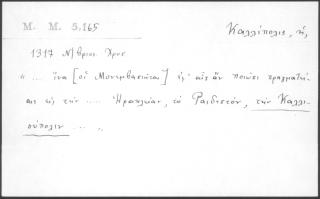 M. M. 5,165
Καλλίπολις, ἡ,
1317 Ν/βριος. Χρυσ
"... ἵνα [οἱ Μονεμβασιῶται] ἐφ' αἷς ἂν ποιῶσι πραγματεί-
αις εἰς τὴν .... Ἡράκλειαν, τὸ Ραιδεστόν, τὴν Καλλι-
ούπολιν ... "